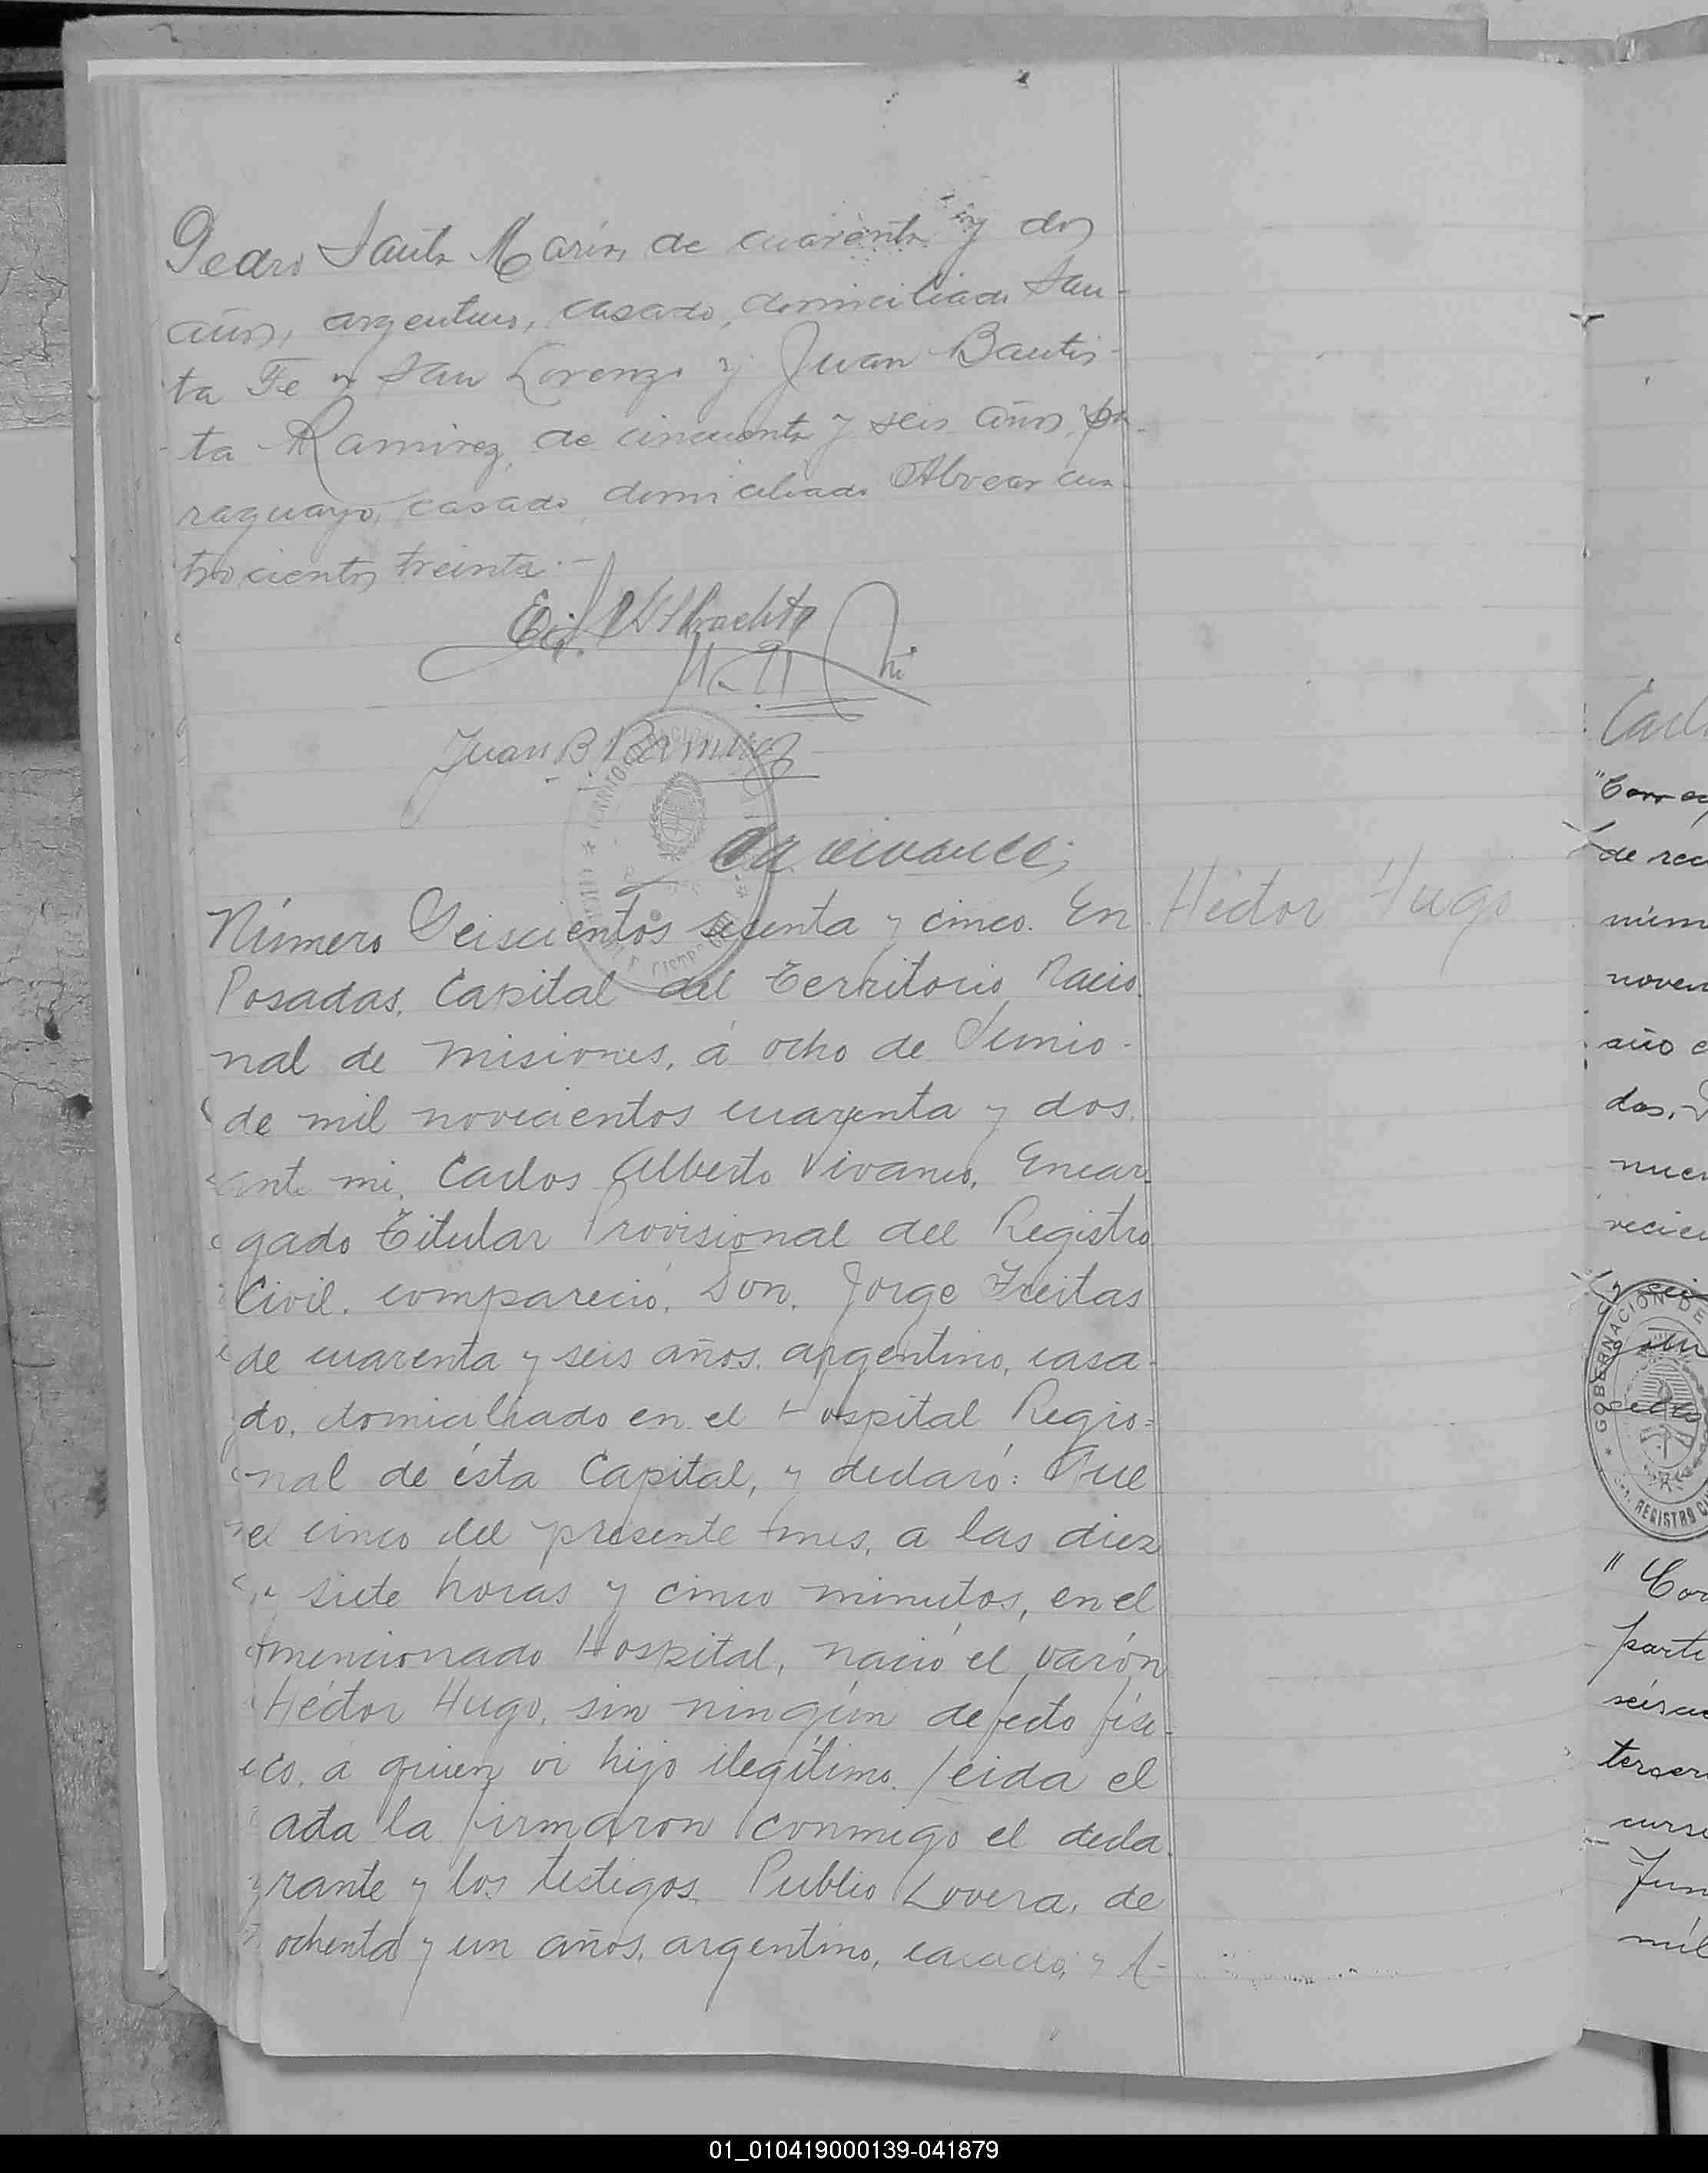 Pedro Santa María, de cuarenta y dos
años, argentino, casado, domiciliado San-
ta Fe y San Lorenzo y Juan Bautis-
ta Ramirez, de cincuenta y seis años, pa-
raguayo, casado, domiciliado Alvear cua-
trocientos treinta.-
Juan B Ramirez
Número Seiscientos sesenta y cinco. En
Héctor Hugo
Posadas, Capital del Territorio Nacio-
nal de Misiones, á ocho de Junio
de mil novecientos cuarenta y dos,
ante mi, Carlos Alberto Vivanco, Encar-
gado Titular Provisional del Registro
Civil, compareció, Don, Jorge Freitas
de cuarenta y seis años, argentino, casa-
do, domiciliado en el Hospital Regio=
nal de ésta Capital, y declaró: Que
el cinco del presente mes, a las diez
y siete horas y cinco minutos, en el
mencionado Hospital, nació el varón
Héctor Hugo, sin ningún defecto físi-
co, á quien vi hijo ilegítimo. Leida el
acta la firmaron conmigo el decla-
rante y los testigos Publio Lovera, de
ochenta y un años, argentino, casado, y A-
de rec
núm
noven
año
dos,
nuev
GOBERNACION DE
REGISTRO
parti
tercer
Jun
mil
01_010419000139-041879